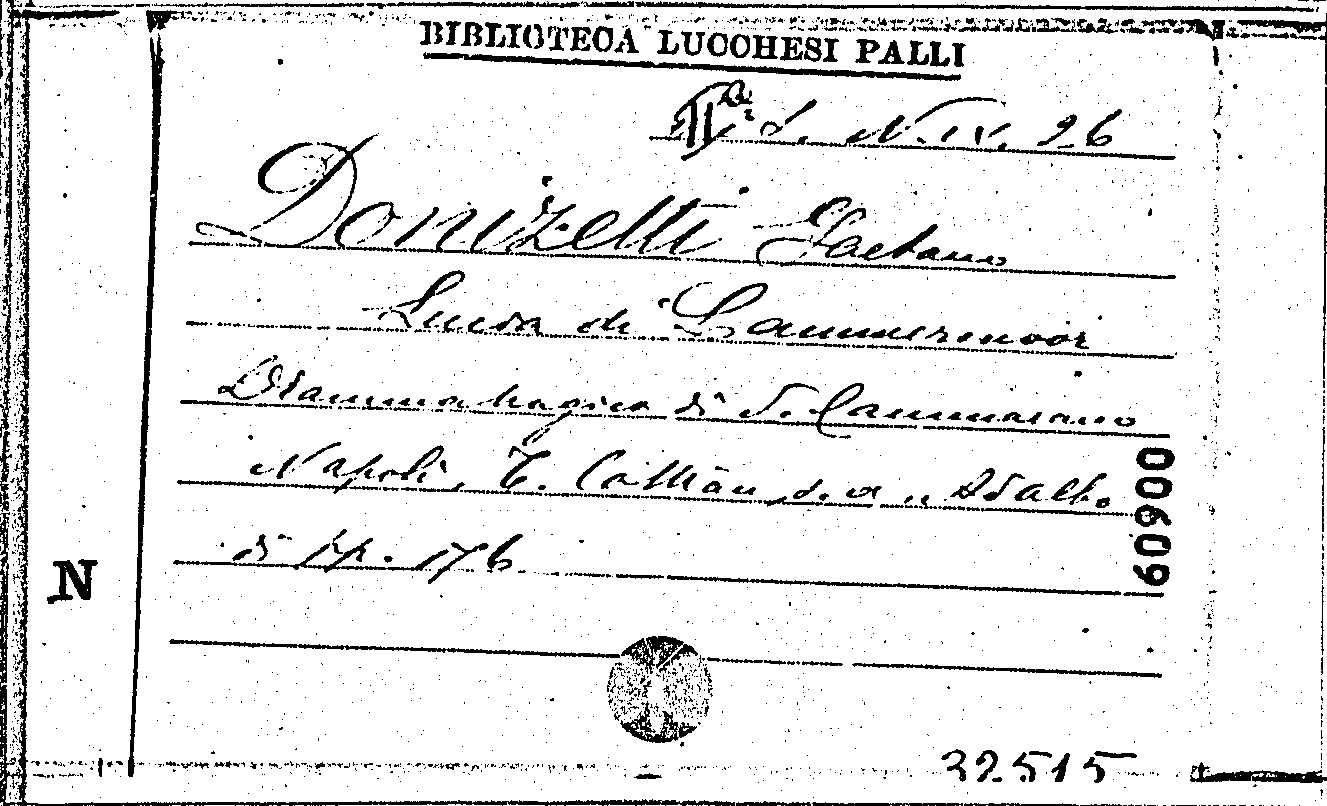 BIBLIOTECA LUCCHESI PALLI
N. IV. 26
Donizetti Gaetano
Lucia di Lammermoor
Dramma tragico di S. Cammarano
Napoli, T. Cottrau, s. a., 
di pp. 176
60900
N
32515